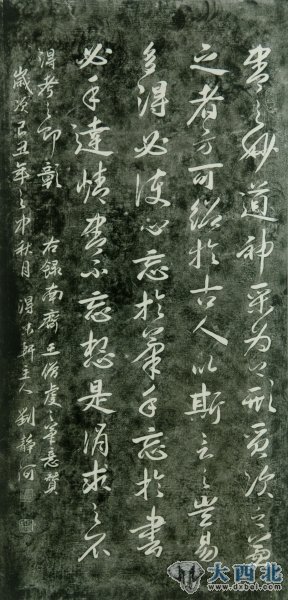 書之妙道神采為上形質次之兼
之者方可紹於古人以斯言之豈易
多得必使心忘於筆手忘於書
心手達情書不忘想是謂求之不
得考之即彰 右錄南齊王僧虔之筆意贊
歲次己丑年之中秋月 得古軒主人 劉靜河
大西北